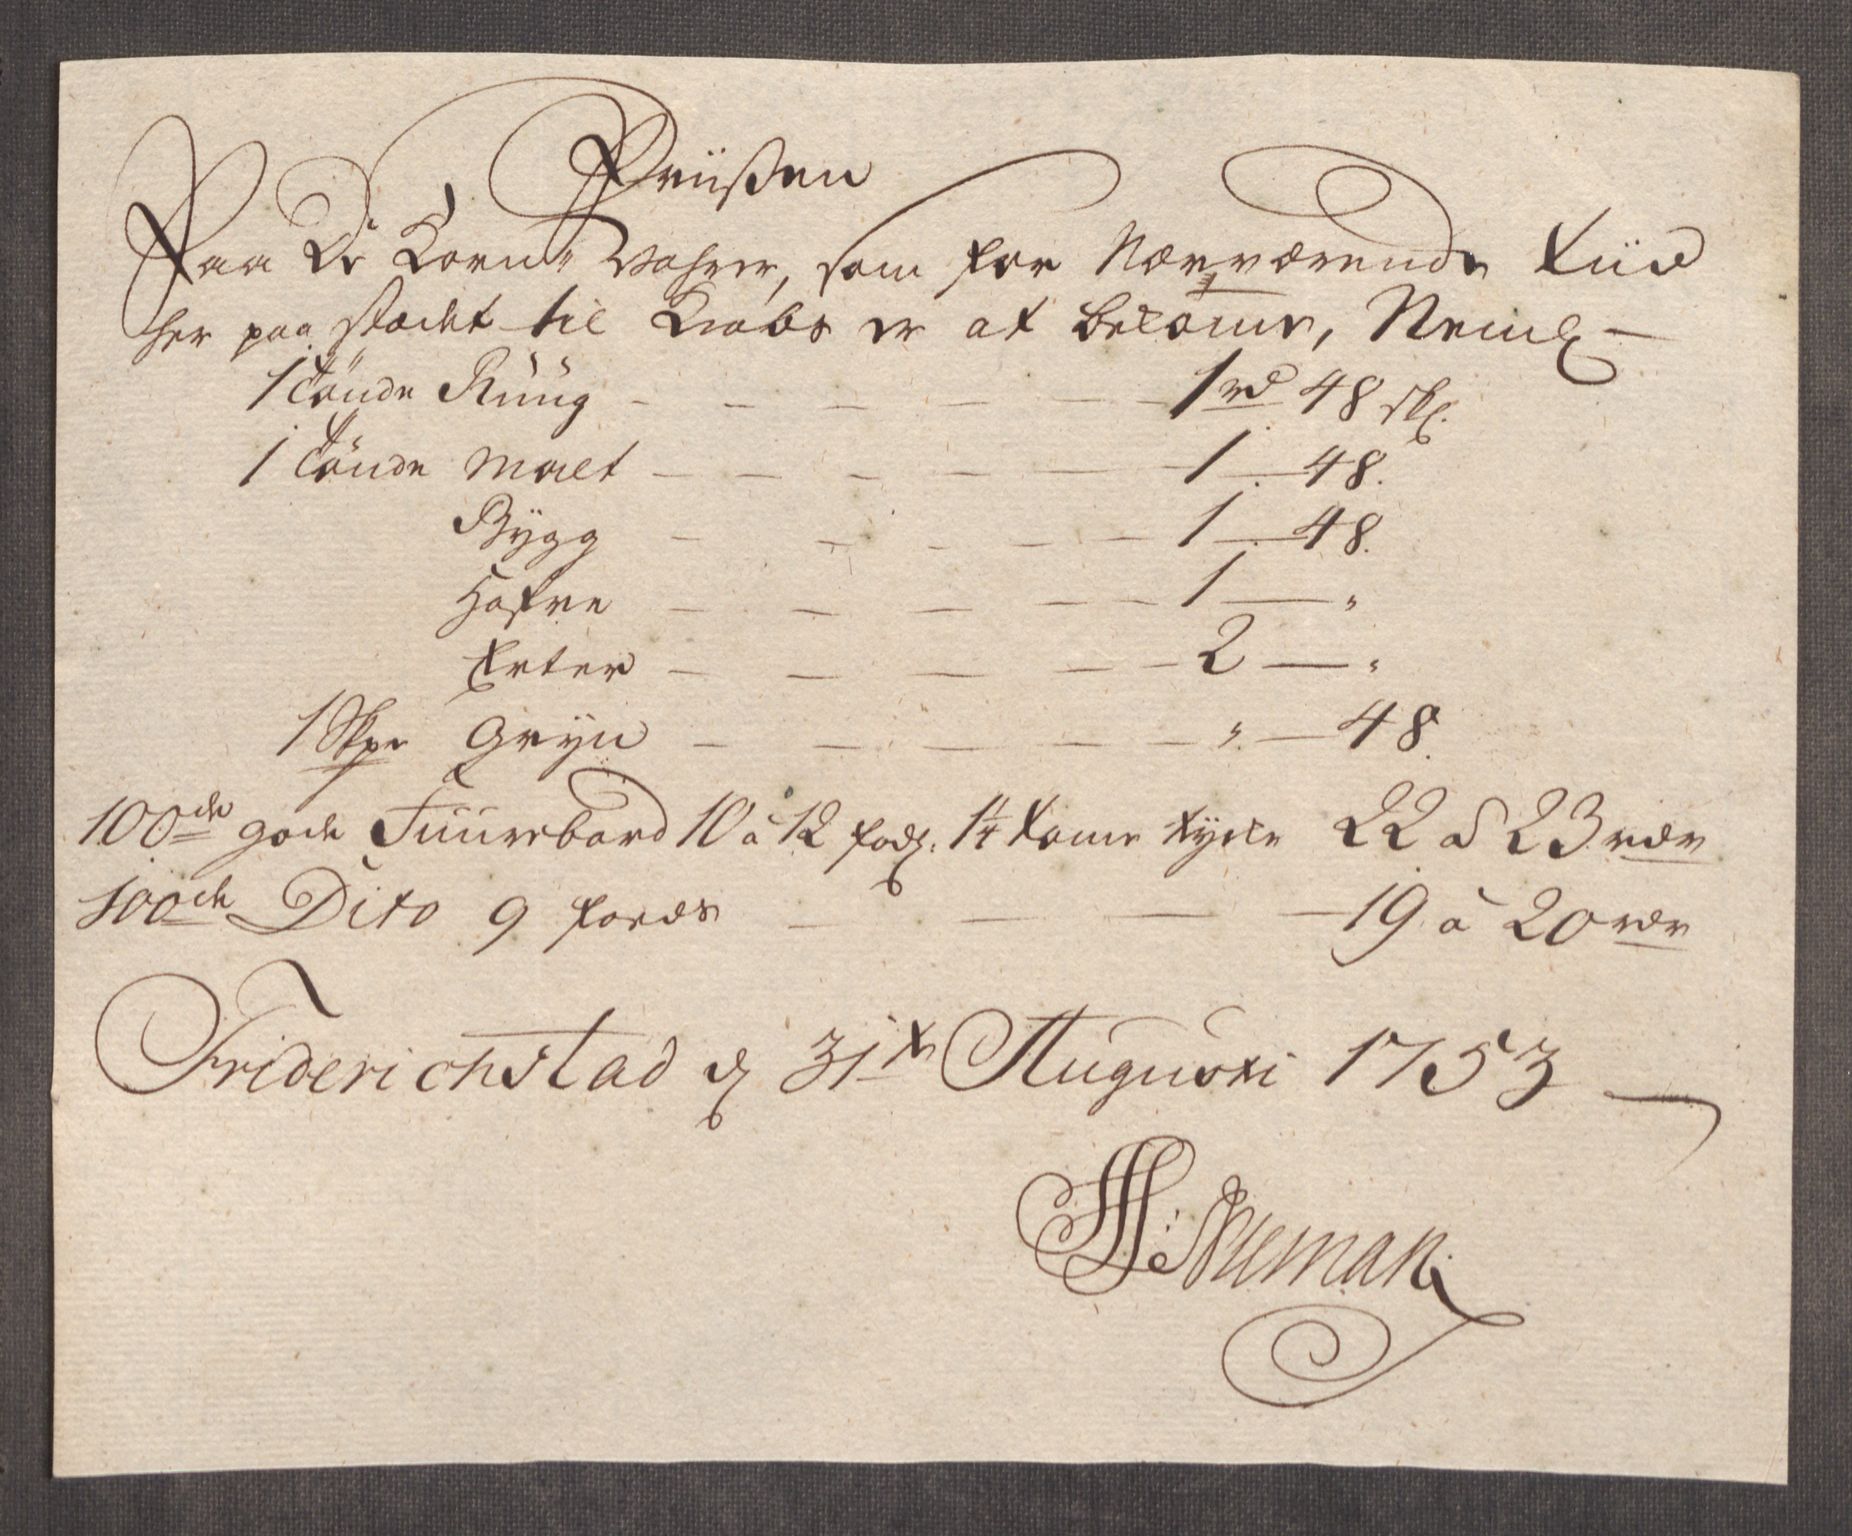 Priißen
Paa de Korn Vahrer, som for Nærværende Tiid
her paa stædet til Kiøbs er at bekome, Neml
1 Tönde Rüüg - - - - - 1 rd 48 skl.
1 Tönde Malt - - - - - 1 - 48.
Bÿgg - - - - - 1 - 48.
Hafre - - - - - 1 - "
Erter - - - - - 2 - "
1 Skpe Grÿn - - - - - " - 48.
100de gode Fuurebord 10 à 12 fod, 1¼ Tome tÿcke 22 à 23 rdr
100de Dito 9 foeds - - - - 19 à 20 rdr
Friderichstad d 31te Augusti 1753